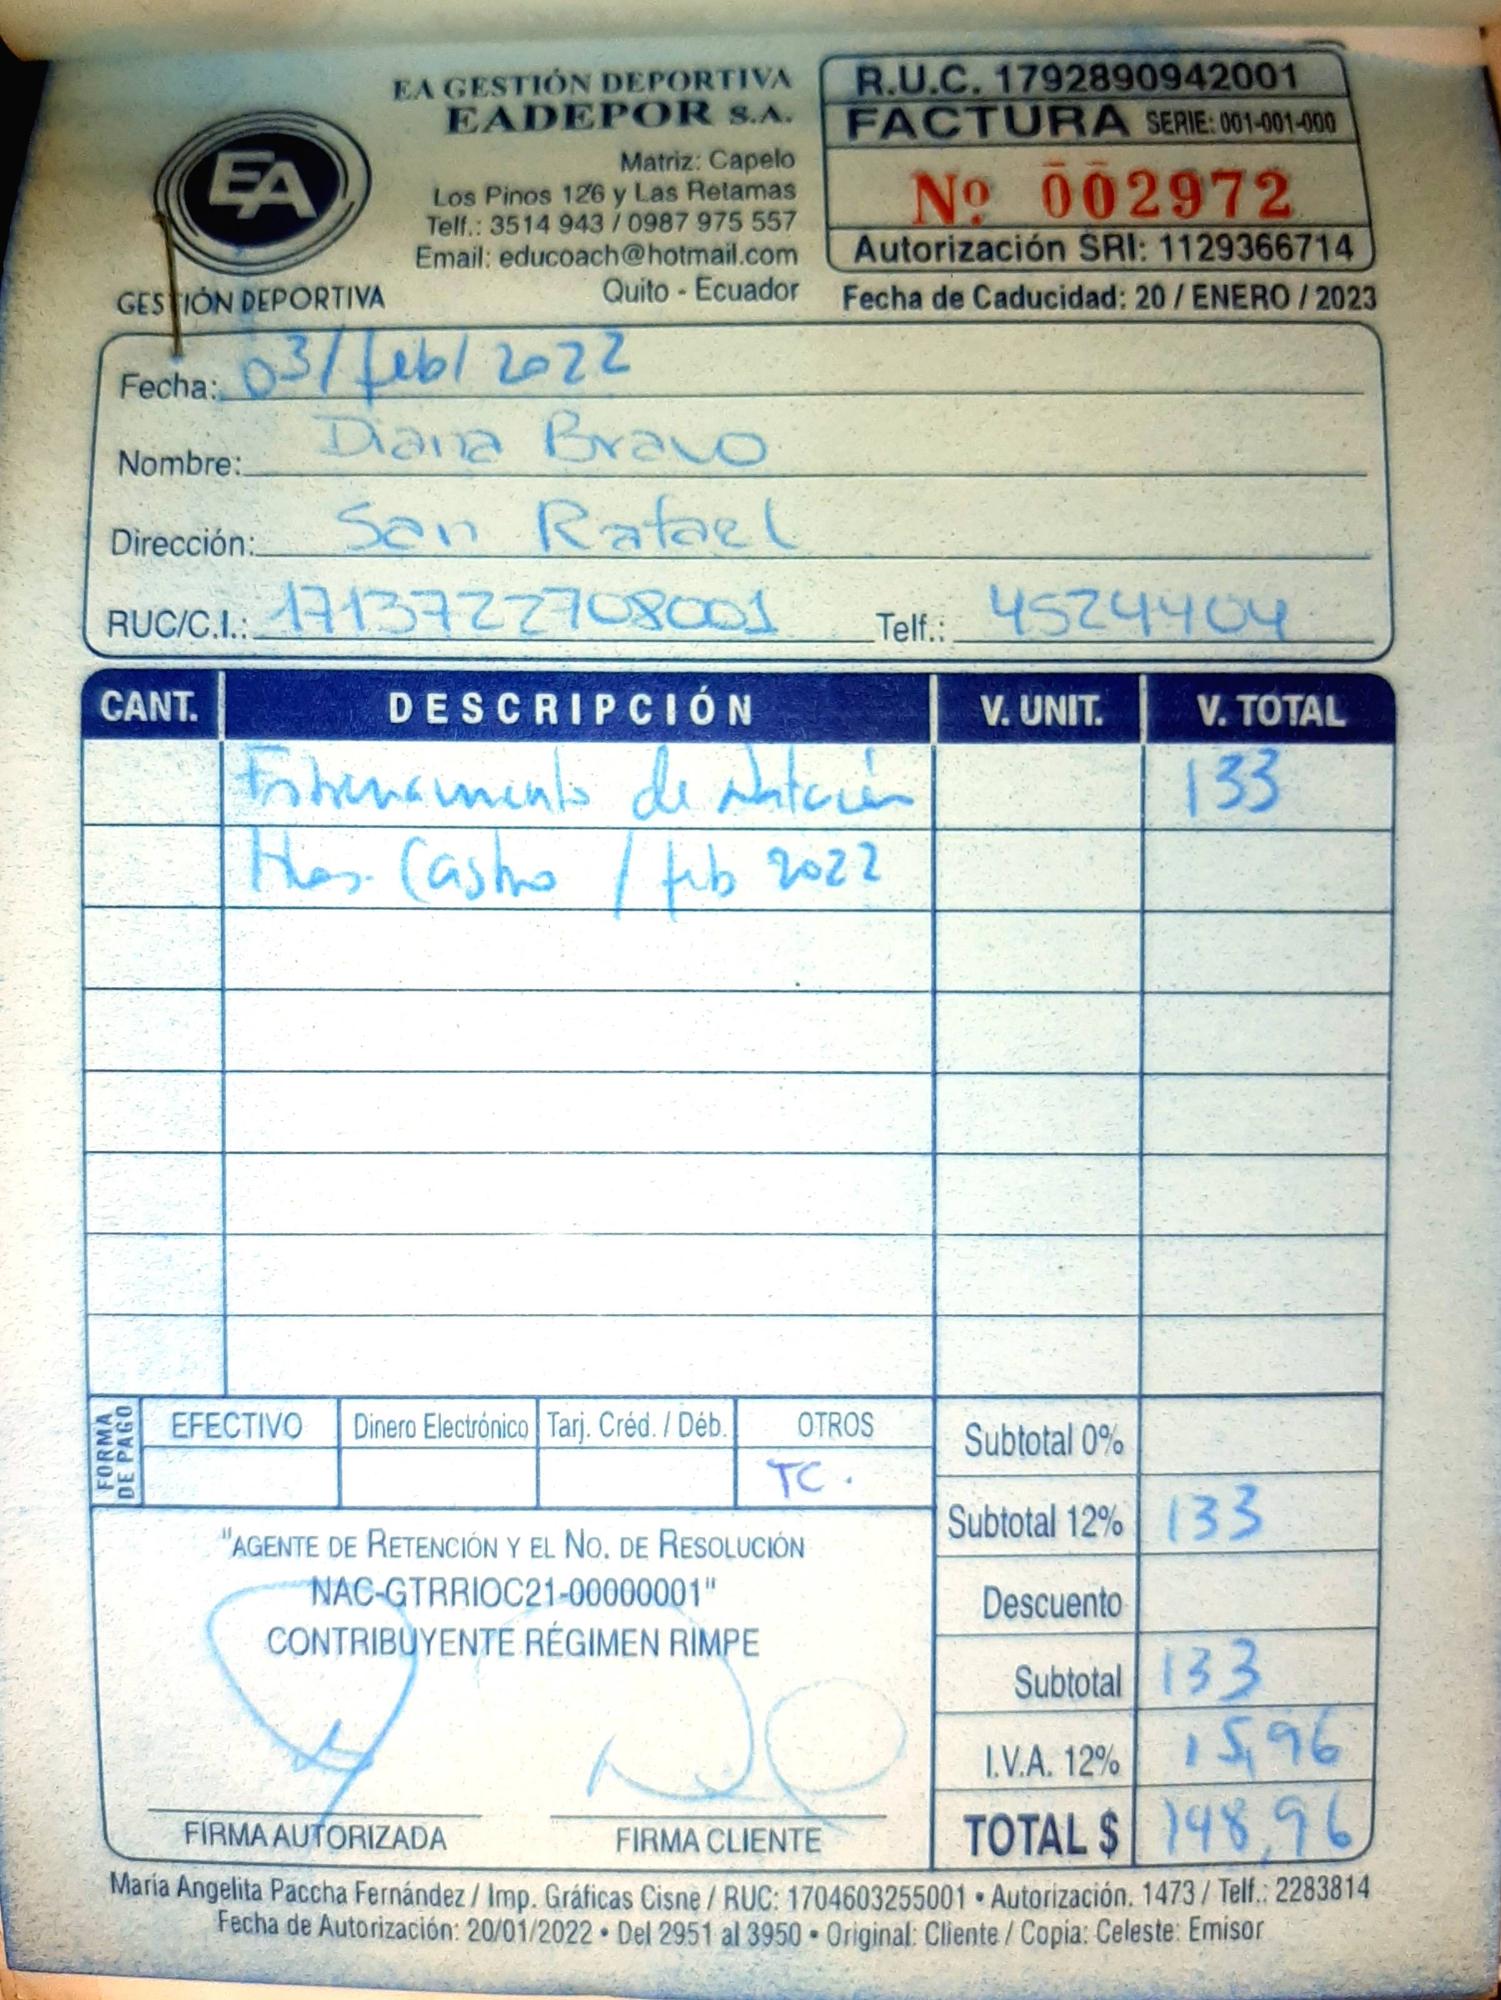 EA GESTIÓN DEPORTIVA
EADEPOR S.A.
Matriz: Capelo
Los Pinos 126 y Las Retamas
Telf.: 3514 943 / 0987 975 557
Email: educoach@hotmail.com
Quito - Ecuador
EA
GESTIÓN DEPORTIVA
R.U.C. 1792890942001
FACTURA SERIE: 001-001-000
Nº 002972
Autorización SRI: 1129366714
Fecha de Caducidad: 20 / ENERO / 2023
Fecha: 03/feb/2022
Nombre: Diana Bravo
Dirección: San Rafael
RUC/C.I.: 1713722708001 Telf.: 4524404
CANT. DESCRIPCIÓN V. UNIT. V. TOTAL
Entrenamiento de Natación 133
Hnos. Castro / feb 2022
FORMA DE PAGO
EFECTIVO Dinero Electrónico Tarj. Créd. / Déb. OTROS
TC.
Subtotal 0%
Subtotal 12% 133
Descuento
Subtotal 133
I.V.A. 12% 15,96
TOTAL $ 148,96
"AGENTE DE RETENCIÓN Y EL NO. DE RESOLUCIÓN
NAC-GTRRIOC21-00000001"
CONTRIBUYENTE RÉGIMEN RIMPE
FIRMA AUTORIZADA FIRMA CLIENTE
María Angelita Paccha Fernández / Imp. Gráficas Cisne / RUC: 1704603255001 • Autorización. 1473 / Telf.: 2283814
Fecha de Autorización: 20/01/2022 • Del 2951 al 3950 • Original: Cliente / Copia: Celeste: Emisor